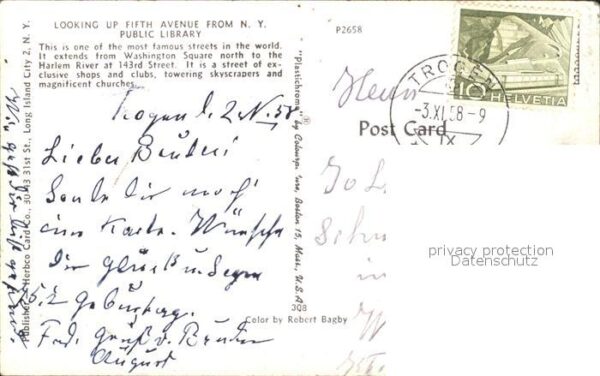 LOOKING UP FIFTH AVENUE FROM N. Y.
PUBLIC LIBRARY
This is one of the most famous streets in the world.
It extends from Washington Square north to the
Harlem River at 143rd Street. It is a street of ex-
clusive shops and clubs, towering skyscrapers and
magnificent churches.
Trogen d. 2. XI. 58
Lieber Bruder!
Sende Dir noch
eine Karte. Wünsche
Dir Glück u. Segen
Geburtstag.
Frdl. Gruß v. Bruder
August
Herbco Card Co., 30 31st St., Long Island City 2, N. Y.
"Plastichrome" by Colourpicture, Boston 15, Mass., U.S.A.
308
Color by Robert Bagby
P2658
Post Card
Herrn
Jo L
Schu
in
TROGEN
-3.XI.58-9
10
HELVETIA
privacy protection
Datenschutz